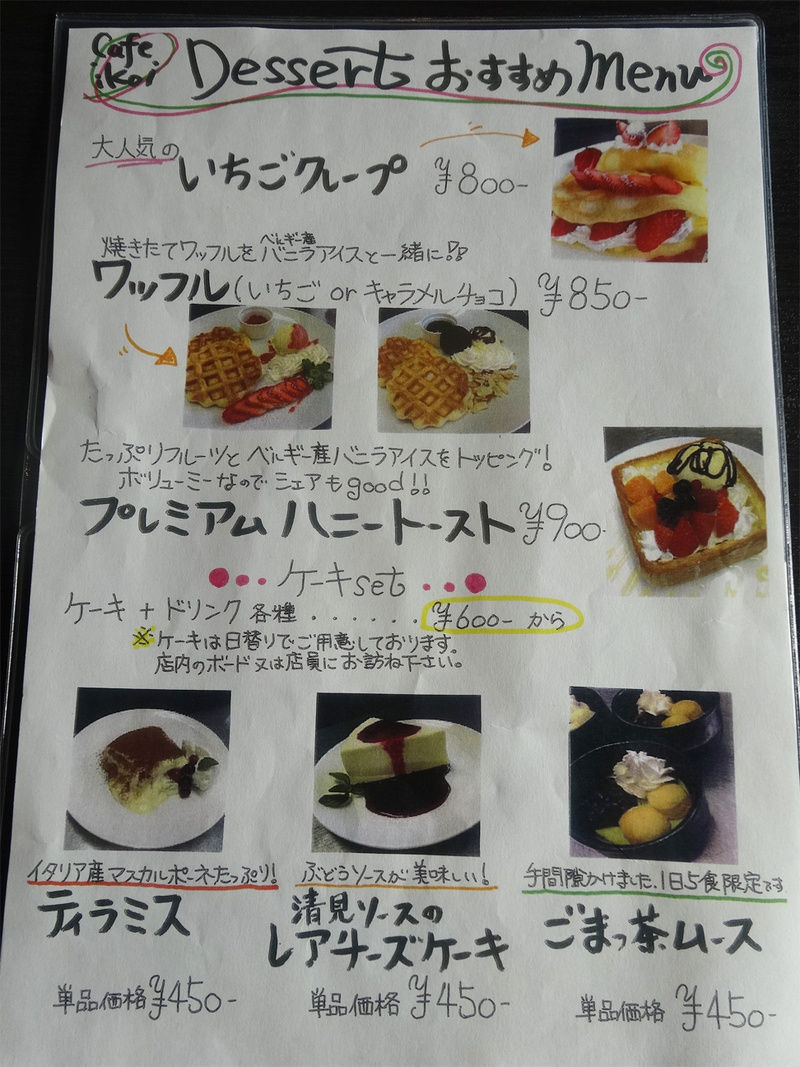 Cafe ikoi
Dessert おすすめ Menu
大人気の
いちごクレープ ¥800-
焼きたてワッフルをベルギー産バニラアイスと一緒に!!
ワッフル(いちご or キャラメルチョコ) ¥850-
たっぷりフルーツとベルギー産バニラアイスをトッピング!
ボリューミーなので シェアもgood!!
プレミアム ハニートースト ¥900-
ケーキset
ケーキ + ドリンク 各種 ...... ¥600- から
※ケーキは日替りでご用意しております。
店内のボード又は店員にお訪ね下さい。
イタリア産マスカルポーネたっぷり!
ティラミス
単品価格 ¥450-
ぶどうソースが美味しい!
清見ソースの
レアチーズケーキ
単品価格 ¥450-
手間隙かけました、1日5食限定です
ごまっ茶ムース
単品価格 ¥450-